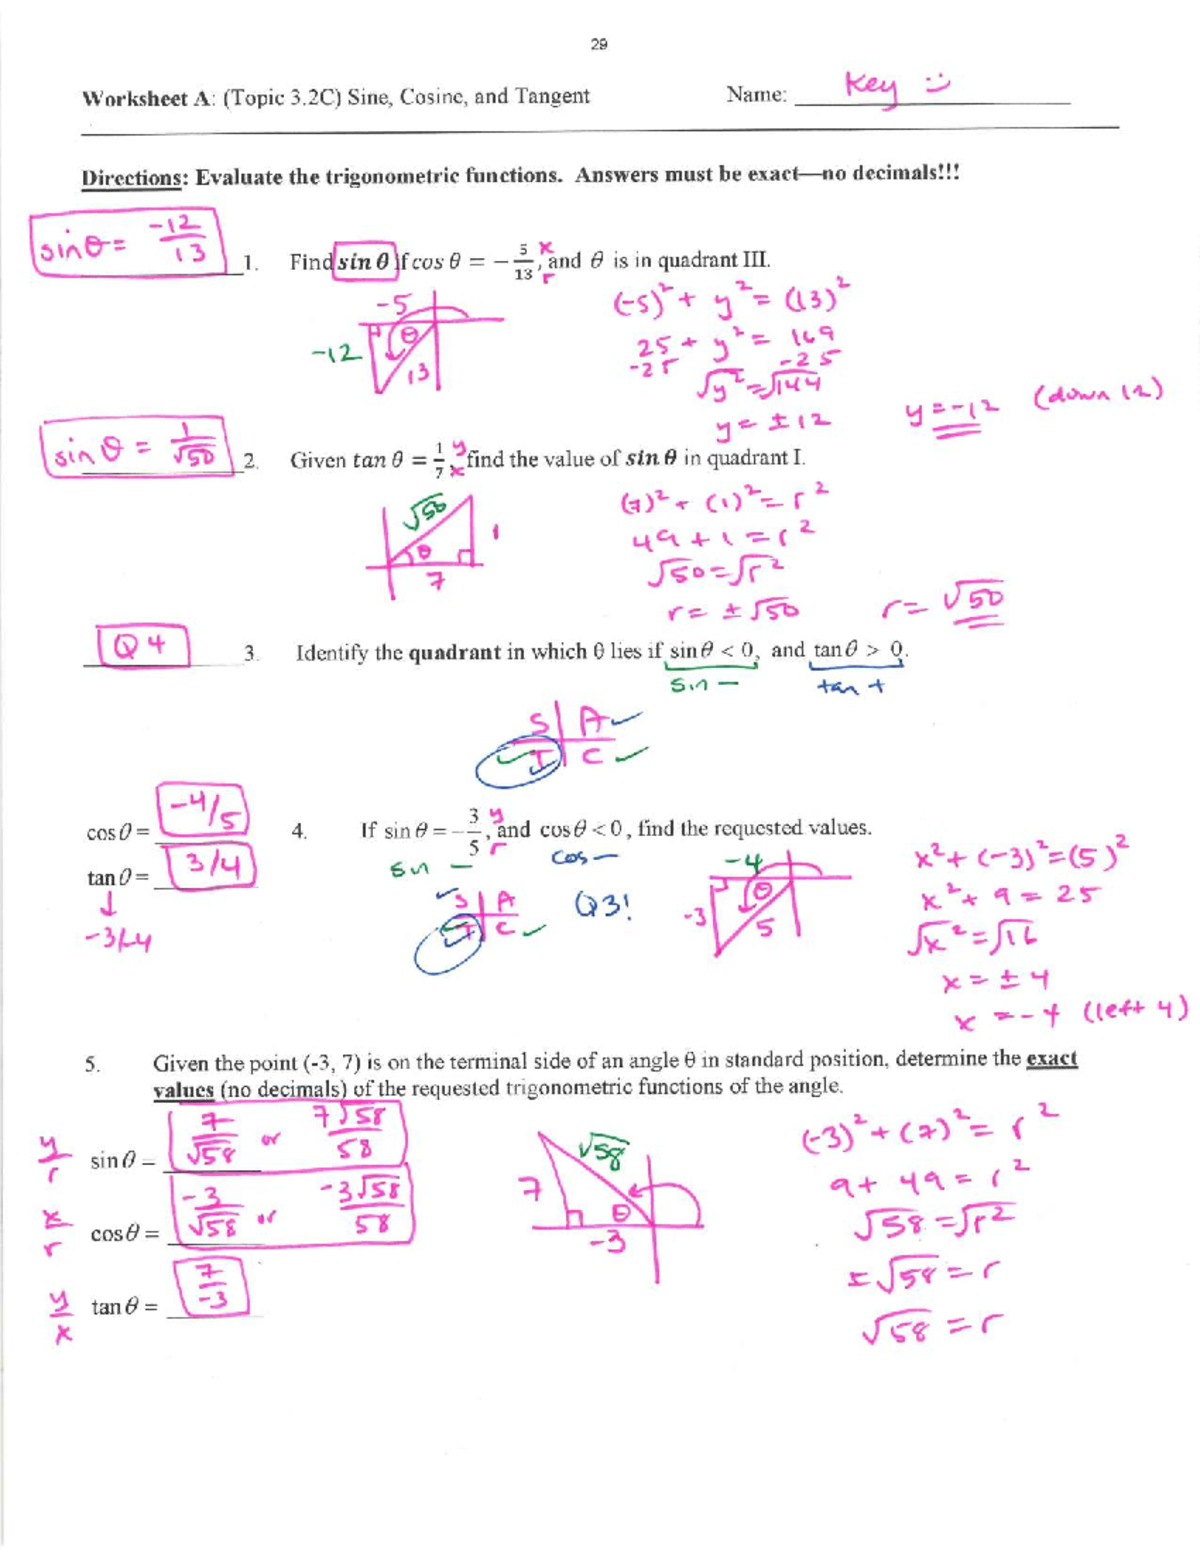 29
Worksheet A: (Topic 3.2C) Sine, Cosine, and Tangent Name: Key
Directions: Evaluate the trigonometric functions. Answers must be exact—no decimals!!!
sinθ = -12/13 1. Find sin θ if cos θ = − 5/13, and θ is in quadrant III. x r
-5
-12
θ
13
(-5)² + y² = (13)²
25 + y² = 169
-25 -25
√y² = √144
y = ± 12 y = -12 (down 12)
sin θ = 1/√50 2. Given tan θ = 1/7, find the value of sin θ in quadrant I. y x
√50
1
θ
7
(7)² + (1)² = r²
49 + 1 = r²
√50 = √r²
r = ± √50 r = √50
Q 4 3. Identify the quadrant in which θ lies if sin θ < 0, and tan θ > 0.
sin − tan +
S A
T C
cos θ = -4/5 4. If sin θ = − 3/5, and cos θ < 0, find the requested values. y r
tan θ = 3/4
-3/-4
sin − cos −
S A
T C
Q3!
-4
-3
θ
5
x² + (-3)² = (5)²
x² + 9 = 25
√x² = √16
x = ± 4
x = -4 (left 4)
5. Given the point (-3, 7) is on the terminal side of an angle θ in standard position, determine the exact
values (no decimals) of the requested trigonometric functions of the angle.
y/r sin θ = 7/√58 or 7√58/58
x/r cos θ = -3/√58 or -3√58/58
y/x tan θ = 7/-3
√58
7
θ
-3
(-3)² + (7)² = r²
9 + 49 = r²
√58 = √r²
± √58 = r
√58 = r